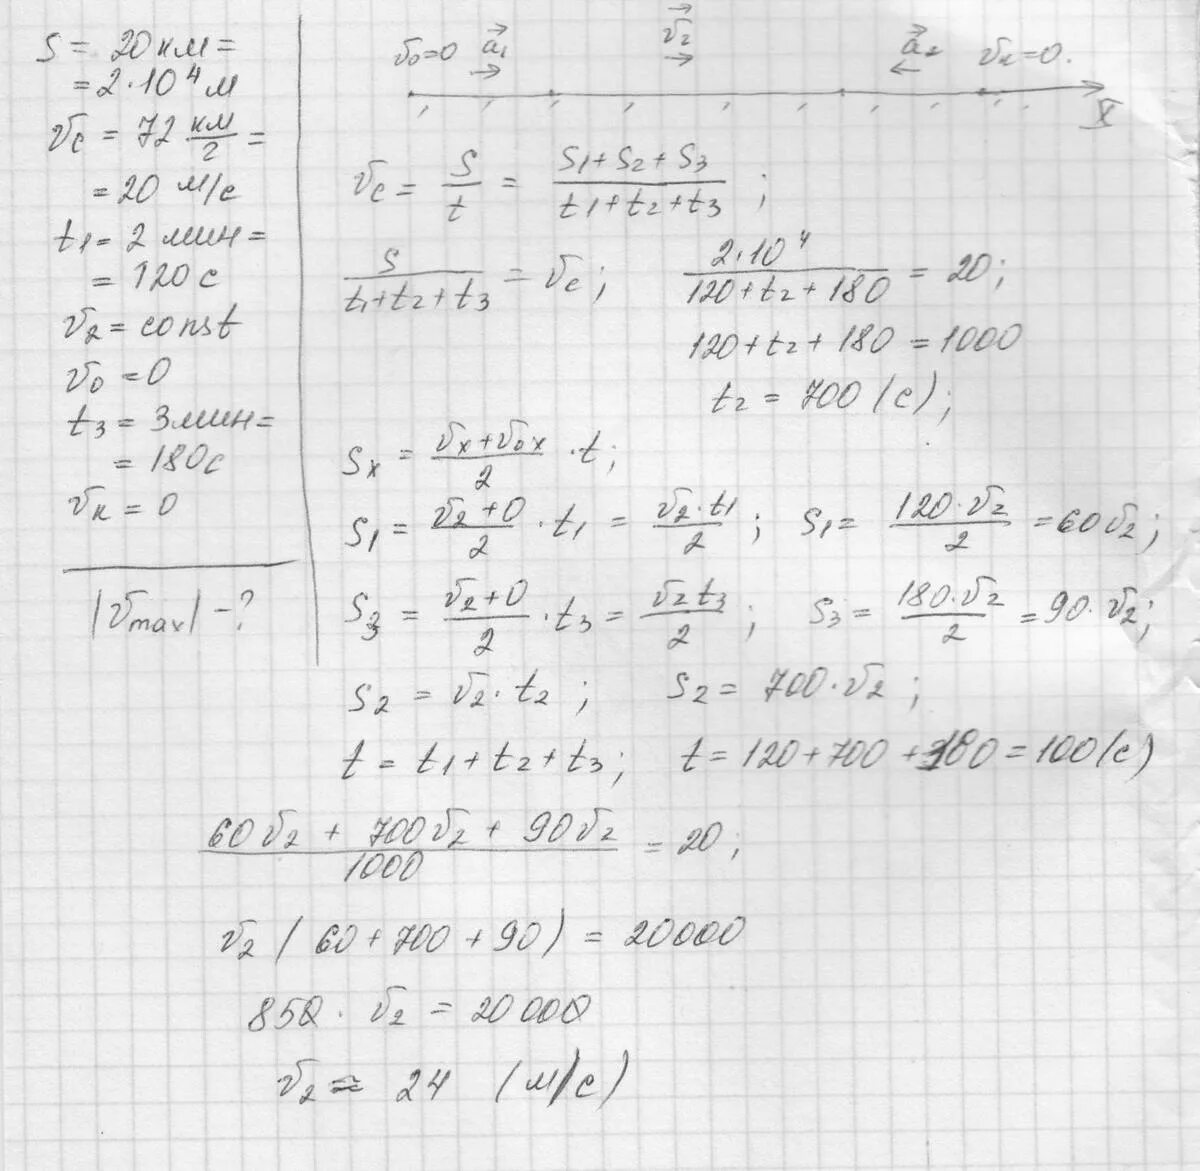 S = 20 км =
= 2·10⁴ м
v⃗c = 72 км/г =
= 20 м/с
t₁ = 2 мин =
= 120 с
v₂ = const
v₀ = 0
t₃ = 3 мин =
= 180 с
vк = 0
|vmax| - ?
v₀=0 a⃗₁ v⃗₂ a⃗₂ vк=0.
X
vc = S/t = (S₁+S₂+S₃)/(t₁+t₂+t₃) ;
S/(t₁+t₂+t₃) = vc ; 2·10⁴/(120+t₂+180) = 20;
120+t₂+180 = 1000
t₂ = 700 (с);
Sₓ = (vₓ+v₀ₓ)/2 · t;
S₁ = (v₂+0)/2 · t₁ = v₂·t₁/2 ; S₁ = 120·v₂/2 = 60v₂;
S₃ = (v₂+0)/2 · t₃ = v₂t₃/2 ; S₃ = 180·v₂/2 = 90·v₂;
S₂ = v₂·t₂ ; S₂ = 700·v₂ ;
t = t₁+t₂+t₃ ; t = 120+700+180 = 100(с)
(60v₂ + 700v₂ + 90v₂)/1000 = 20 ;
v₂ (60+700+90) = 20000
850 · v₂ = 20 000
v₂ ≈ 24 (м/с)